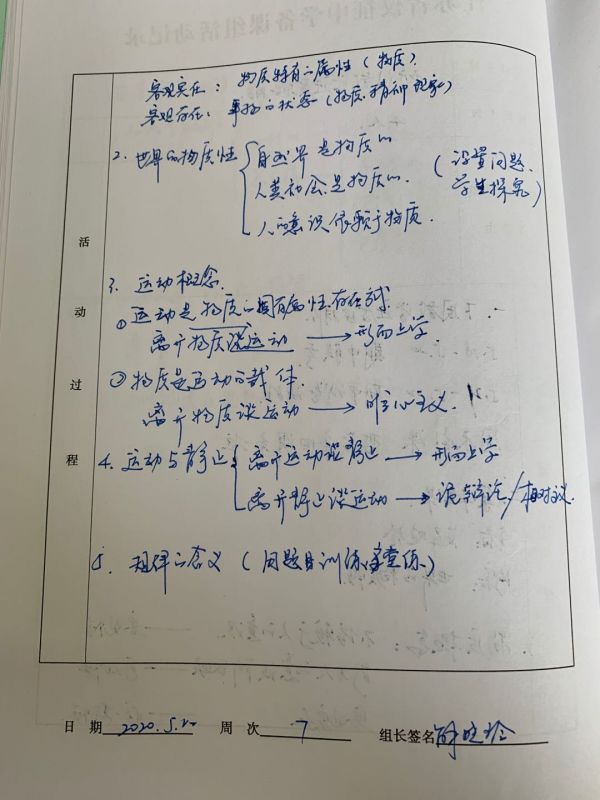 客观实在：物质特有的属性（物质）
客观存在：事物的状态（物质.精神现象）
2. 世界的物质性
自然界是物质的
人类社会是物质的.
人的意识依赖于物质.
（设置问题.
学生探究）
3. 运动概念.
①运动是物质的固有属性.存在方式
离开物质谈运动 → 形而上学
②物质是运动的载体.
离开物质谈运动 → 唯心主义.
4. 运动与静止
离开运动谈静止 → 形而上学
离开静止谈运动 → 诡辩论/相对主义.
5. 规律的含义（用题目训练
活动过程
日 期 2020.5.20 周 次 7 组长签名